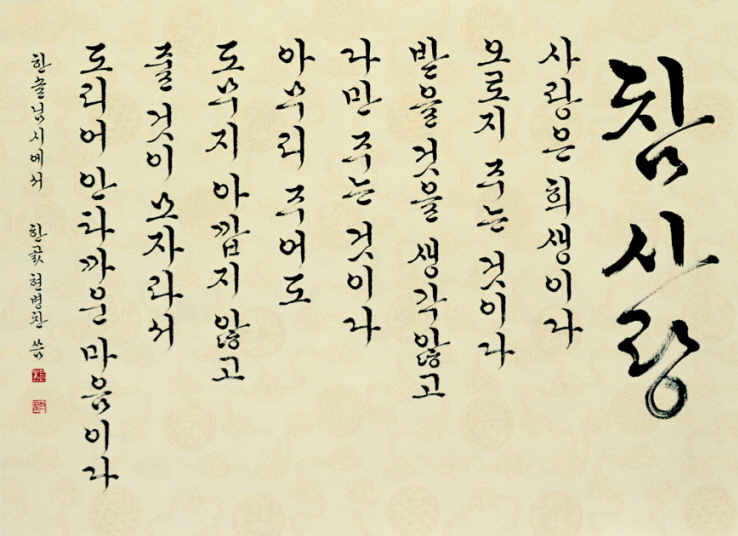 참사랑
사랑은 희생이라
오로지 주는 것이라
받을 것을 생각 않고
다만 주는 것이라
아무리 주어도
도무지 아깝지 않고
줄 것이 모자라서
도리어 안타까운 마음이라
한솔님 시에서 한곬 현병찬 씀